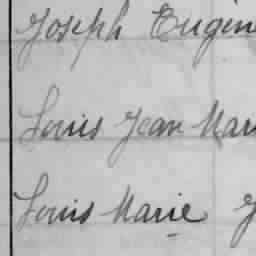 Joseph Eugèn
Louis Jean Mari
Louis Marie J